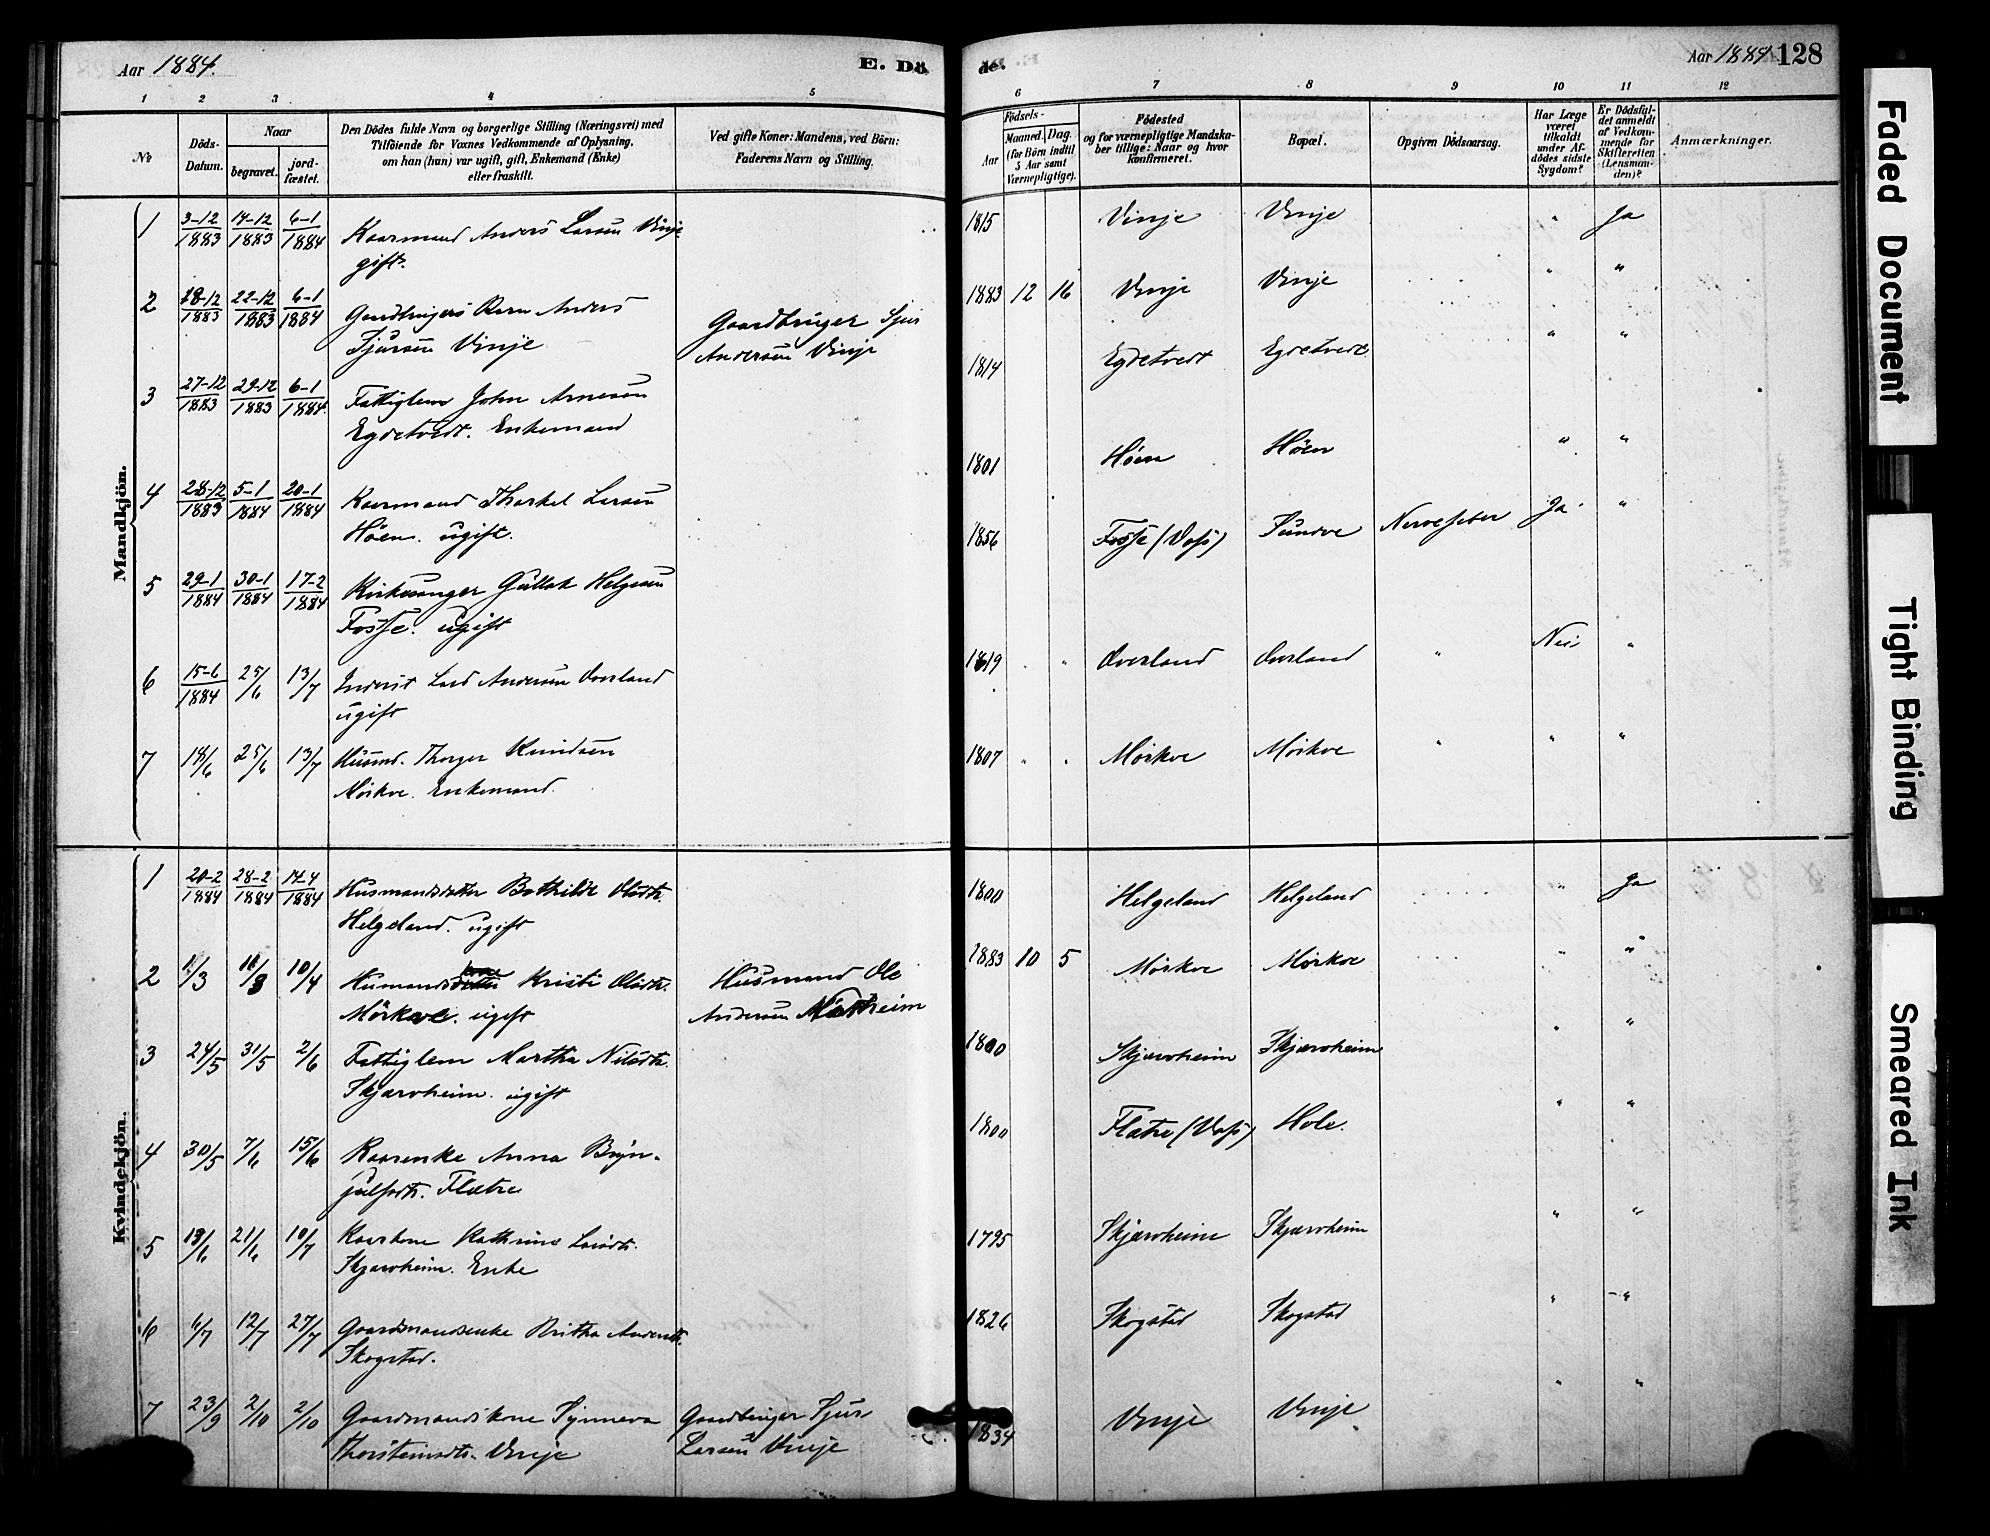 Aar 1884.
E. Dö
1 2 3 4 5
No
Döds-
Datum.
Naar
begravet.
jord-
fæstet.
Den Dödes fulde Navn og borgerlige Stilling (Næringsvei) med
Tilföiende for Voxnes Vedkommende af Oplysning,
om han (hun) var ugift, gift, Enkemand (Enke)
eller fraskilt.
Ved gifte Koner: Mandens, ved Börn:
Faderens Navn og Stilling.
Mandkjön.
1 3-12/1883 14-12/1883 6-1/1884 Kaarmand Anders Larsen Vinje
gift.
2 18-12/1883 22-12/1883 6-1/1884 Gaardbrugers Barn Anders
Sjursen Vinje
Gaardbruger Sjur
Andersen Vinje
3 27-12/1883 29-12/1883 6-1/1884 Fattiglem John Arnesen
Egdetvedt. Enkemand
4 28-12/1883 5-1/1884 20-1/1884 Kaarmand Thorkel Larsen
Höen. ugift.
5 29-1/1884 30-1/1884 17-2/1884 Kirkesanger Gullak Helgesen
Fosse. ugift
6 15-6/1884 25/6 13/7 Inderst Lars Andersen Overland
ugift
7 18/6 25/6 13/7 Husmd. Thorger Knudsen
Mörkve. Enkemand.
Kvindekjön.
1 20-2/1884 28-2/1884 14-4/1884 Husmandsdatter Bothilde Olsdtr.
Helgeland. ugift
2 11/3 18/3 10/4 Husmands Kristi Olsdtr.
Mörkve. ugift
Husmand Ole
Andersen
3 24/5 31/5 2/6 Fattiglem Martha Nilsdtr.
Skjærvheim. ugift
4 30/5 7/6 15/6 Kaarenke Anna Bryn-
julfsdtr. Flatre
5 13/6 21/6 10/7 Kaarkone Kathrine Larsdtr.
Skjærvheim. Enke
6 6/7 12/7 27/7 Gaardmandsenke Britha Andersdtr.
Skogstad.
7 23/9 2/10 2/10 Gaardmandskone Synneva
Thorsteinsdtr. Vinje
Gaardbruger Sjur
Larsen Vinje
de.
Aar 1884. 128
6 7 8 9 10 11 12
Födsels-
Aar
Maaned. Dag.
(for Börn indtil
5 Aar samt
Værnepligtige).
Födested
og for værnepligtige Mandska-
ber tillige: Naar og hvor
konfirmeret.
Bopæl.
Opgiven Dödsaarsag.
Har Læge
været
tilkaldt
under Af-
dödes sidste
Sygdom?
Er Dödsfal-
det anmeldt
af Vedkom-
mende for
Skifteretten
(Lensman-
den)?
Anmærkninger.
1815 Vinje Vinje " Ja
1883 12 16 Vinje Vinje " "
1814 Egdetvedt Egdetvedt " "
1801 Höen Höen " "
1856 Fosse (Voss) Sundve Nervefeber Ja "
1819 " " Overland Overland " Nei "
1807 " " Mörkve Mörkve " " "
1800 Helgeland Helgeland " Ja
1883 10 5 Mörkve Mörkve " "
1800 Skjærvheim Skjærvheim " "
1800 Flatre (Voss) Hole. " "
1795 Skjærvheim Skjærvheim " "
1826 Skogstad Skogstad " "
1834 Vinje Vinje " "
Faded Document
Tight Binding
Smeared Ink